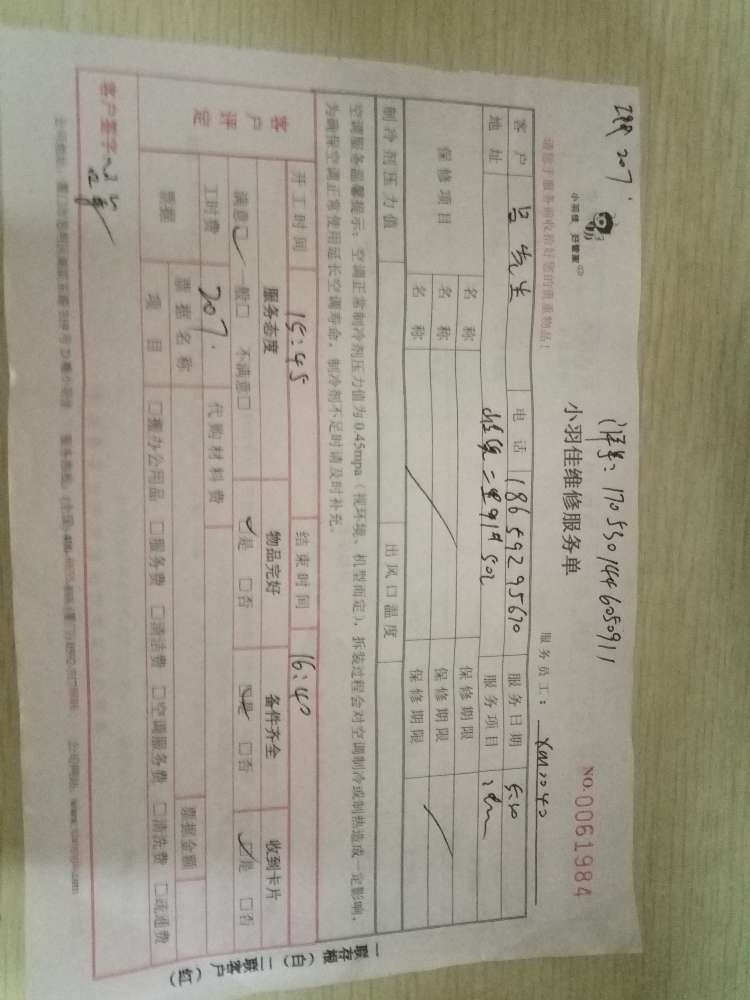 207.
小羽佳 好管家
请您于服务前收拾好您的贵重物品！
订单号：170530144605091１
小羽佳维修服务单
NO.0061984
服务员工：XM0040
客户 吕先生 电话 18659295670 服务日期 5.30
地址 二里91# 502 服务项目
保修项目 名称 保修期限
名称 保修期限
名称 保修期限
制冷剂压力值 出风口温度
空调服务温馨提示：空调正常制冷剂压力值为0.45mpa（视环境、机型而定），拆装过程会对空调制冷或制热造成一定影响，
为确保空调正常使用延长空调寿命，制冷剂不足时请及时补充。
开工时间 15:45 结束时间 16:40
客户评定 服务态度 物品完好 备件齐全 收到卡片
满意☑ 一般□ 不满意□ ☑是 □否 ☑是 □否 ☑是 □否
工时费 207. 代购材料费
票据 票据名称 票据金额
项目 □搬办公用品 □服务费 □清洁费 □空调服务费 □清洗费 □疏通费
客户签字：
一联存根（白）二联客户（红）